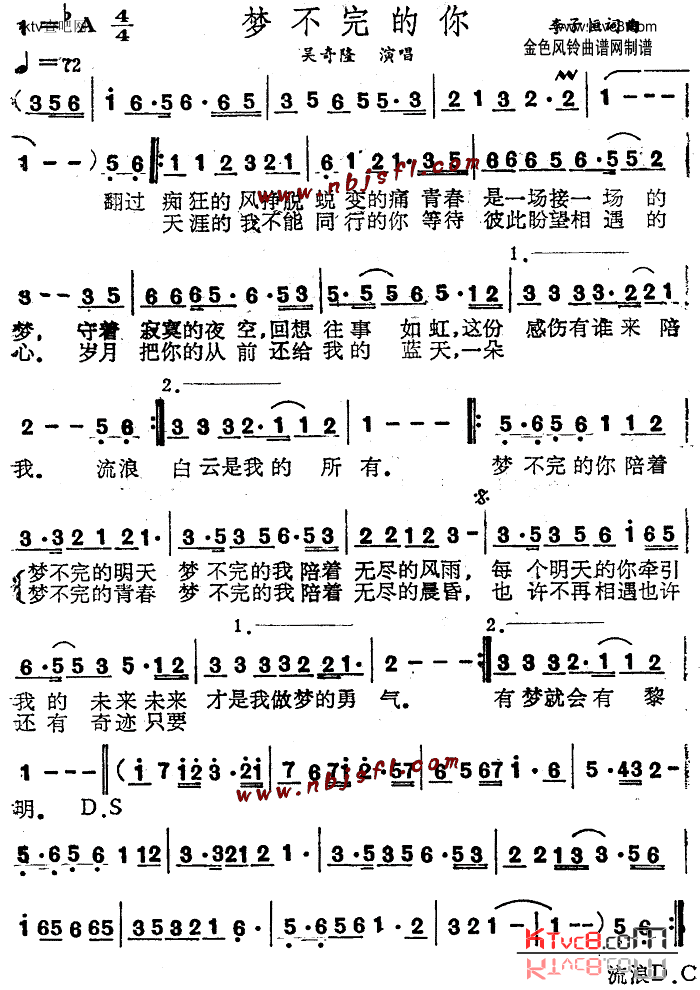 1=♭A 4/4
梦不完的你
李子恒词曲
♩=72
吴奇隆 演唱
金色风铃曲谱网制谱
(3 5 6 | i 6·5 6·6 5 | 3 5 6 5 5·3 | 2 1 3 2·2 | 1 - - -
1 - -) 5 6 |: 1 1 2 3 2 1 | 6 1 2 1·3 5 | 6 6 6 5 6·5 5 2
翻过 痴狂的风挣脱 蜕变的痛青春 是一场接一场的
天涯的我不能 同行的你等待 彼此盼望相遇的
www.nbjsfl.com
1.
3 - - 3 5 | 6 6 6 5·6·5 3 | 5·5 5 6 5·1 2 | 3 3 3 3·2 2 1
梦, 守着 寂寞的夜空,回想 往事 如虹,这份 感伤有谁来陪
心。 岁月 把你的从前还给 我的 蓝天,一朵
2.
2 - - 5 6 :| 3 3 3 2·1 1 2 | 1 - - - |: 5·6 5 6 1 1 2
我。 流浪 白云是我的所有。 梦不完的你陪着
3·3 2 1 2 1· | 3·5 3 5 6·5 3 | 2 2 1 2 3 - | 3·5 3 5 6 i 6 5
梦不完的明天 梦不完的我陪着 无尽的风雨, 每个明天的你牵引
梦不完的青春 梦不完的我陪着 无尽的晨昏, 也许不再相遇也许
1.
2.
6·5 5 3 5·1 2 | 3 3 3 3·2 2 1· | 2 - - - :| 3 3 3 2·1 1 2
我的 未来未来 才是我做梦的勇 气。 有梦就会有黎
还有 奇迹只要
1 - - - |(i 7 i 2 3·2 i | 7 6 7 i 2·5 7 | 6·5 6 7 i·6 | 5·4 3 2 -
明。 D.S
www.nbjsfl.com
5·6 5 6 1 1 2 | 3·3 2 1 2 1· | 3·5 3 5 6·5 3 | 2 2 1 3 3·5
i 6 5 6 6 5 | 3 5 3 2 1 | 5·6 5 6 1 | 3 2 1 1 - | 1 - -) 5 6 :|
KTvc8.com
流浪D.C